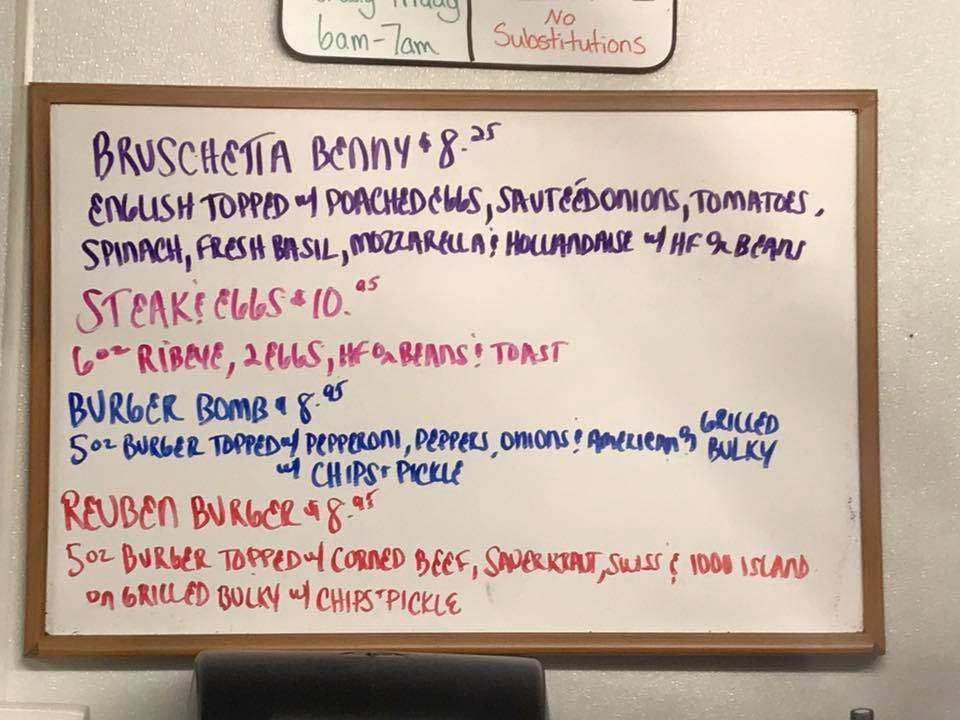 Friday
6am-7am
No
Substitutions
BRUSCHETTA BENNY $8.25
ENGLISH TOPPED w/ POACHED EGGS, SAUTEÉD ONIONS, TOMATOES,
SPINACH, FRESH BASIL, MOZZARELLA & HOLLANDAISE w/ HF or BEANS
STEAK & EGGS $10.95
6oz RIBEYE, 2 EGGS, HF or BEANS & TOAST
BURGER BOMB $8.95
5oz BURGER TOPPED w/ PEPPERONI, PEPPERS, ONIONS & AMERICAN on GRILLED
BULKY
w/ CHIPS + PICKLE
REUBEN BURGER $8.95
5oz BURGER TOPPED w/ CORNED BEEF, SAUERKRAUT, SWISS & 1000 ISLAND
on GRILLED BULKY w/ CHIPS + PICKLE